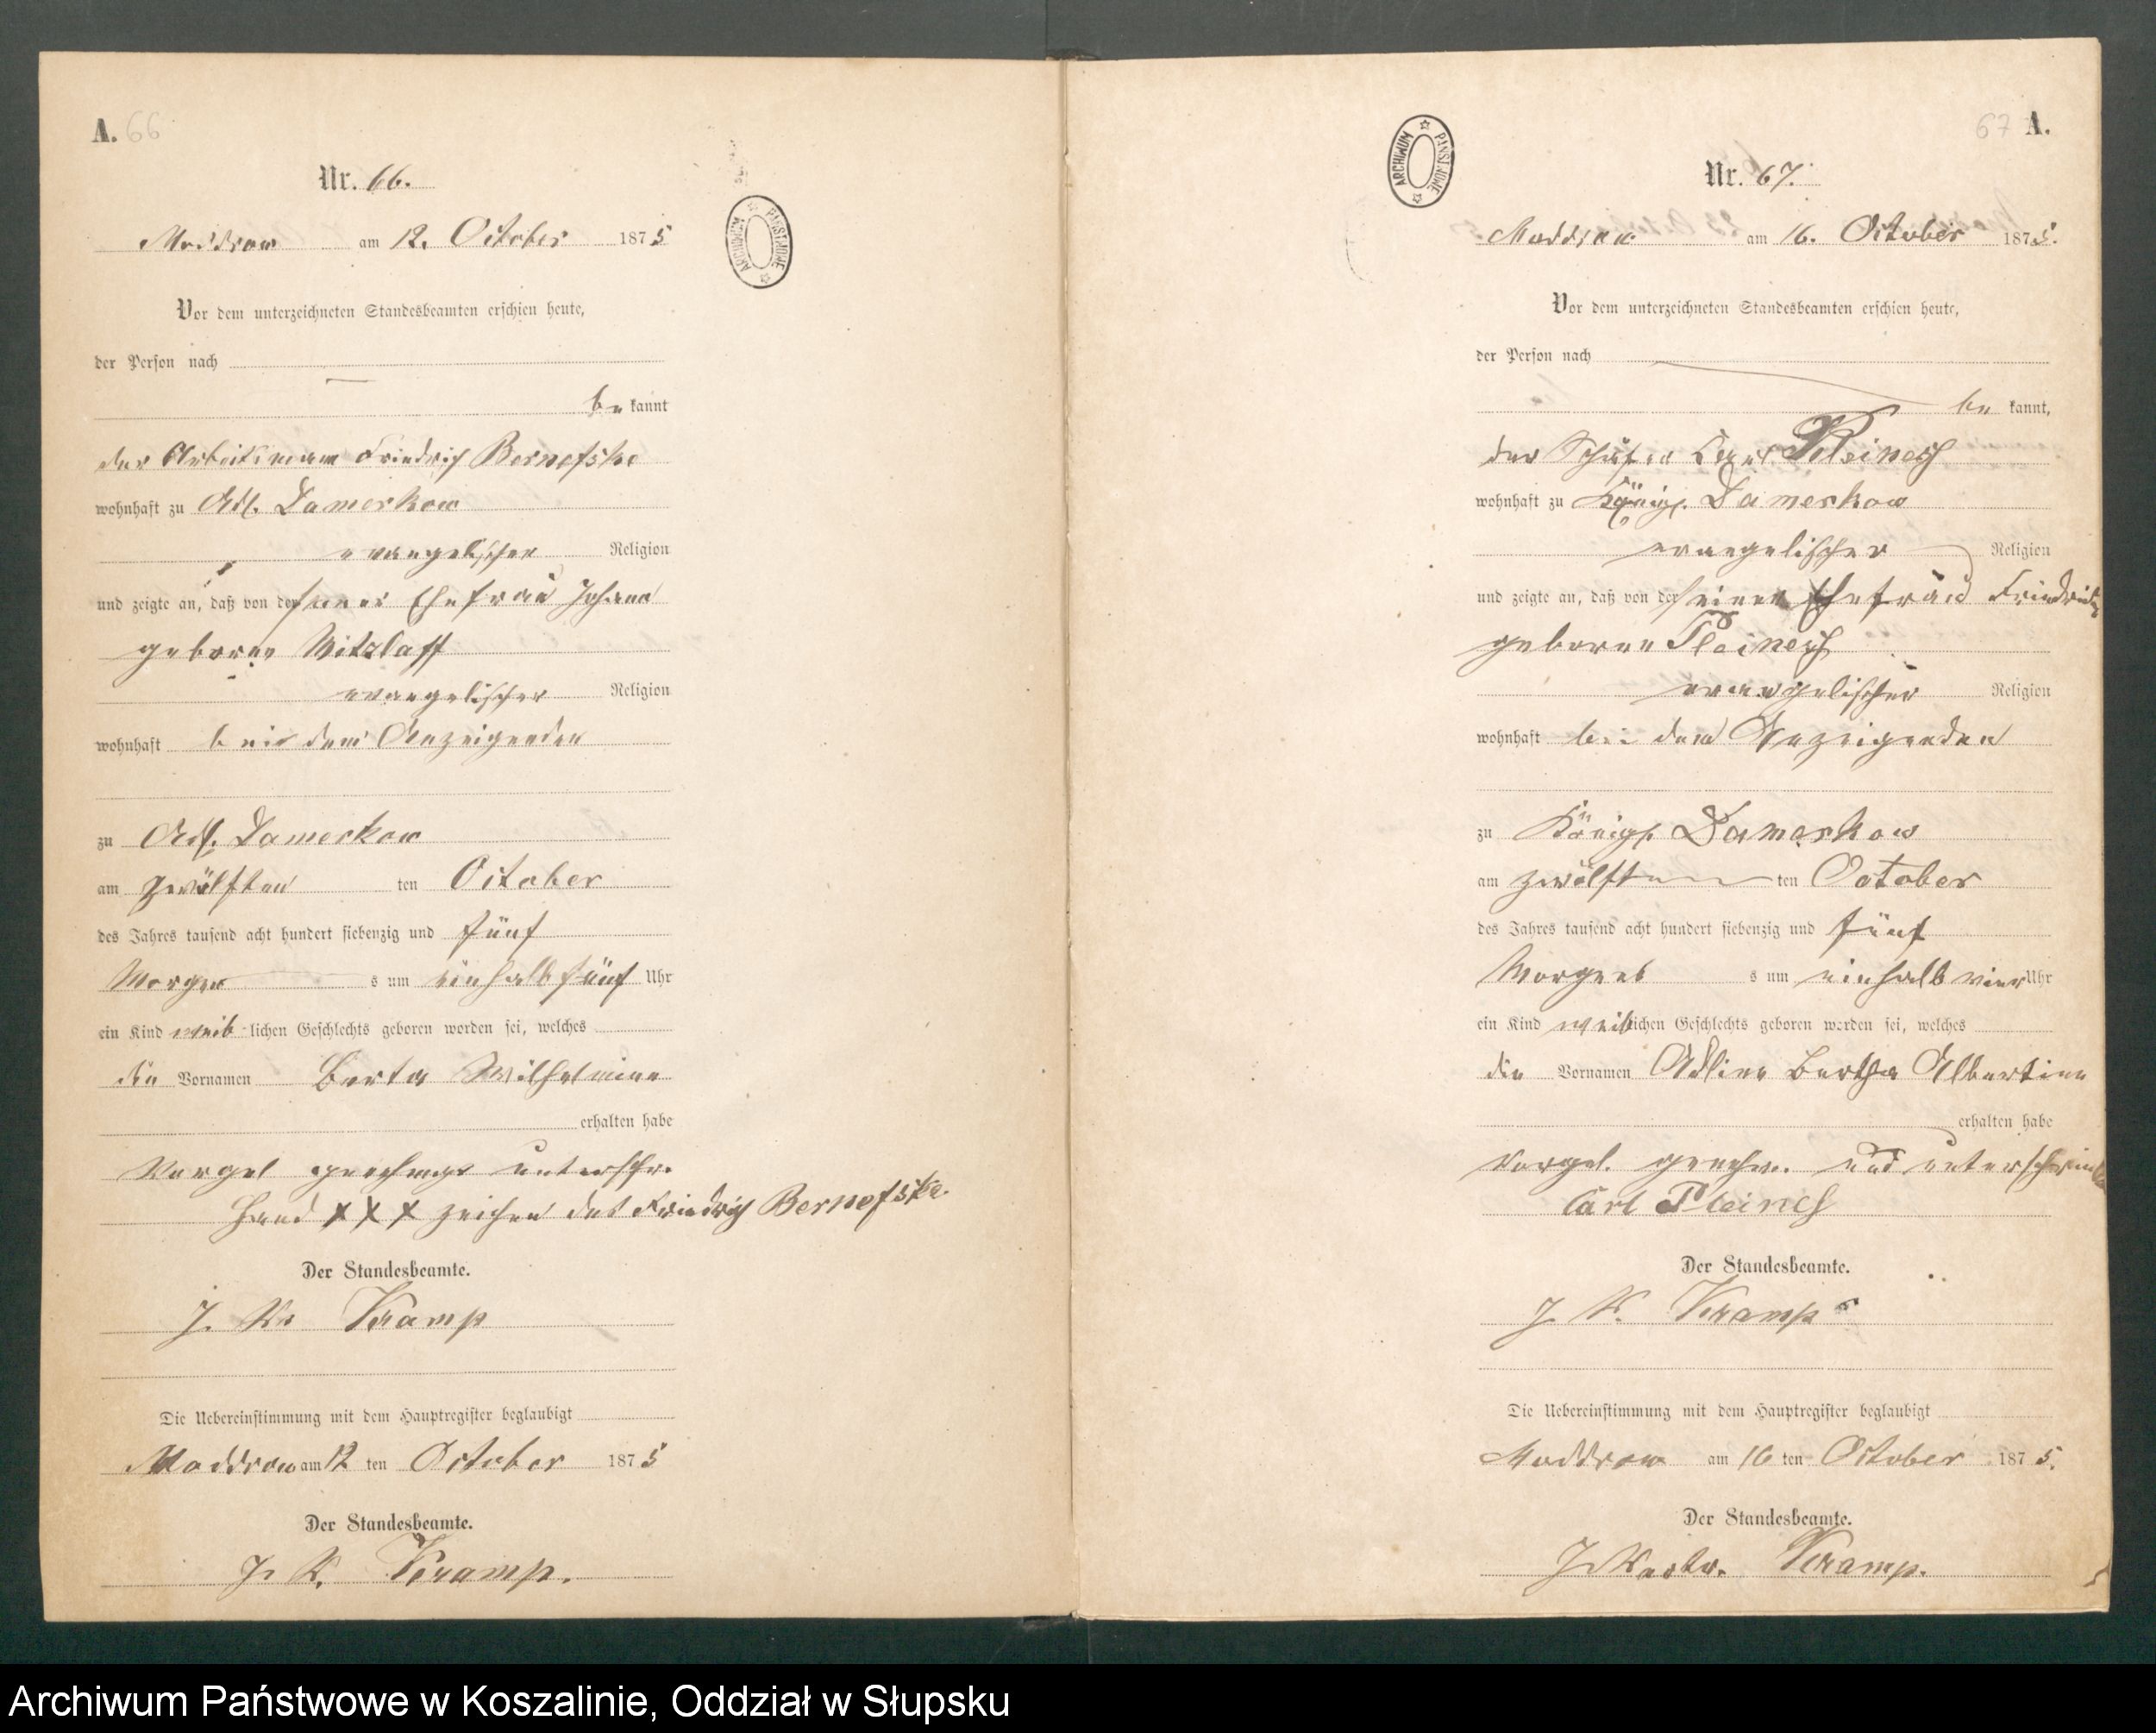 A. 66
Nr. 66.
Moddrow am 12. October 1875
Vor dem unterzeichneten Standesbeamten erschien heute,
der Person nach
be kannt
der Arbeitsmann Friedrich Bernefske
wohnhaft zu Adl. Damerkow
evangelischer Religion
und zeigte an, daß von der seiner Ehefrau Johana
geborne Witzlaff
evangelischer Religion
wohnhaft bei dem Anzeigenden
zu Adl. Damerkow
am zwölften ten October
des Jahres tausend acht hundert siebenzig und fünf
Morgen s um einhalb fünf Uhr
ein Kind weib lichen Geschlechts geboren worden sei, welches
die Vornamen Berta Wilhelmine
erhalten habe
Vorgel genehmigt unterschr.
Hand x x x zeichen des Friedrich Bernefske.
Der Standesbeamte.
J. V. Kramp
Die Uebereinstimmung mit dem Hauptregister beglaubigt
Moddrow am 12 ten October 1875
Der Standesbeamte.
J. V. Kramp.
ARCHIWUM PAŃSTWOWE
67 A.
Nr. 67.
Moddrow am 16. October 1875.
Vor dem unterzeichneten Standesbeamten erschien heute,
der Person nach
be kannt,
der Schäfer Carl Pleines
wohnhaft zu Königl. Damerkow
evangelischer Religion
und zeigte an, daß von der seiner Ehefrau Friedricke
geborne Pleines
evangelischer Religion
wohnhaft bei dem Anzeigenden
zu Königl. Damerkow
am zwölften ten October
des Jahres tausend acht hundert siebenzig und fünf
Morgens s um einhalb vier Uhr
ein Kind weiblichen Geschlechts geboren worden sei, welches
die Vornamen Adline Bertha Albertine
erhalten habe
Vorgel. genehm. und unterschrieben
Carl Pleines
Der Standesbeamte.
J. V. Kramp
Die Uebereinstimmung mit dem Hauptregister beglaubigt
Moddrow am 16 ten October 1875.
Der Standesbeamte.
Kramp.
ARCHIWUM PAŃSTWOWE
Archiwum Państwowe w Koszalinie, Oddział w Słupsku